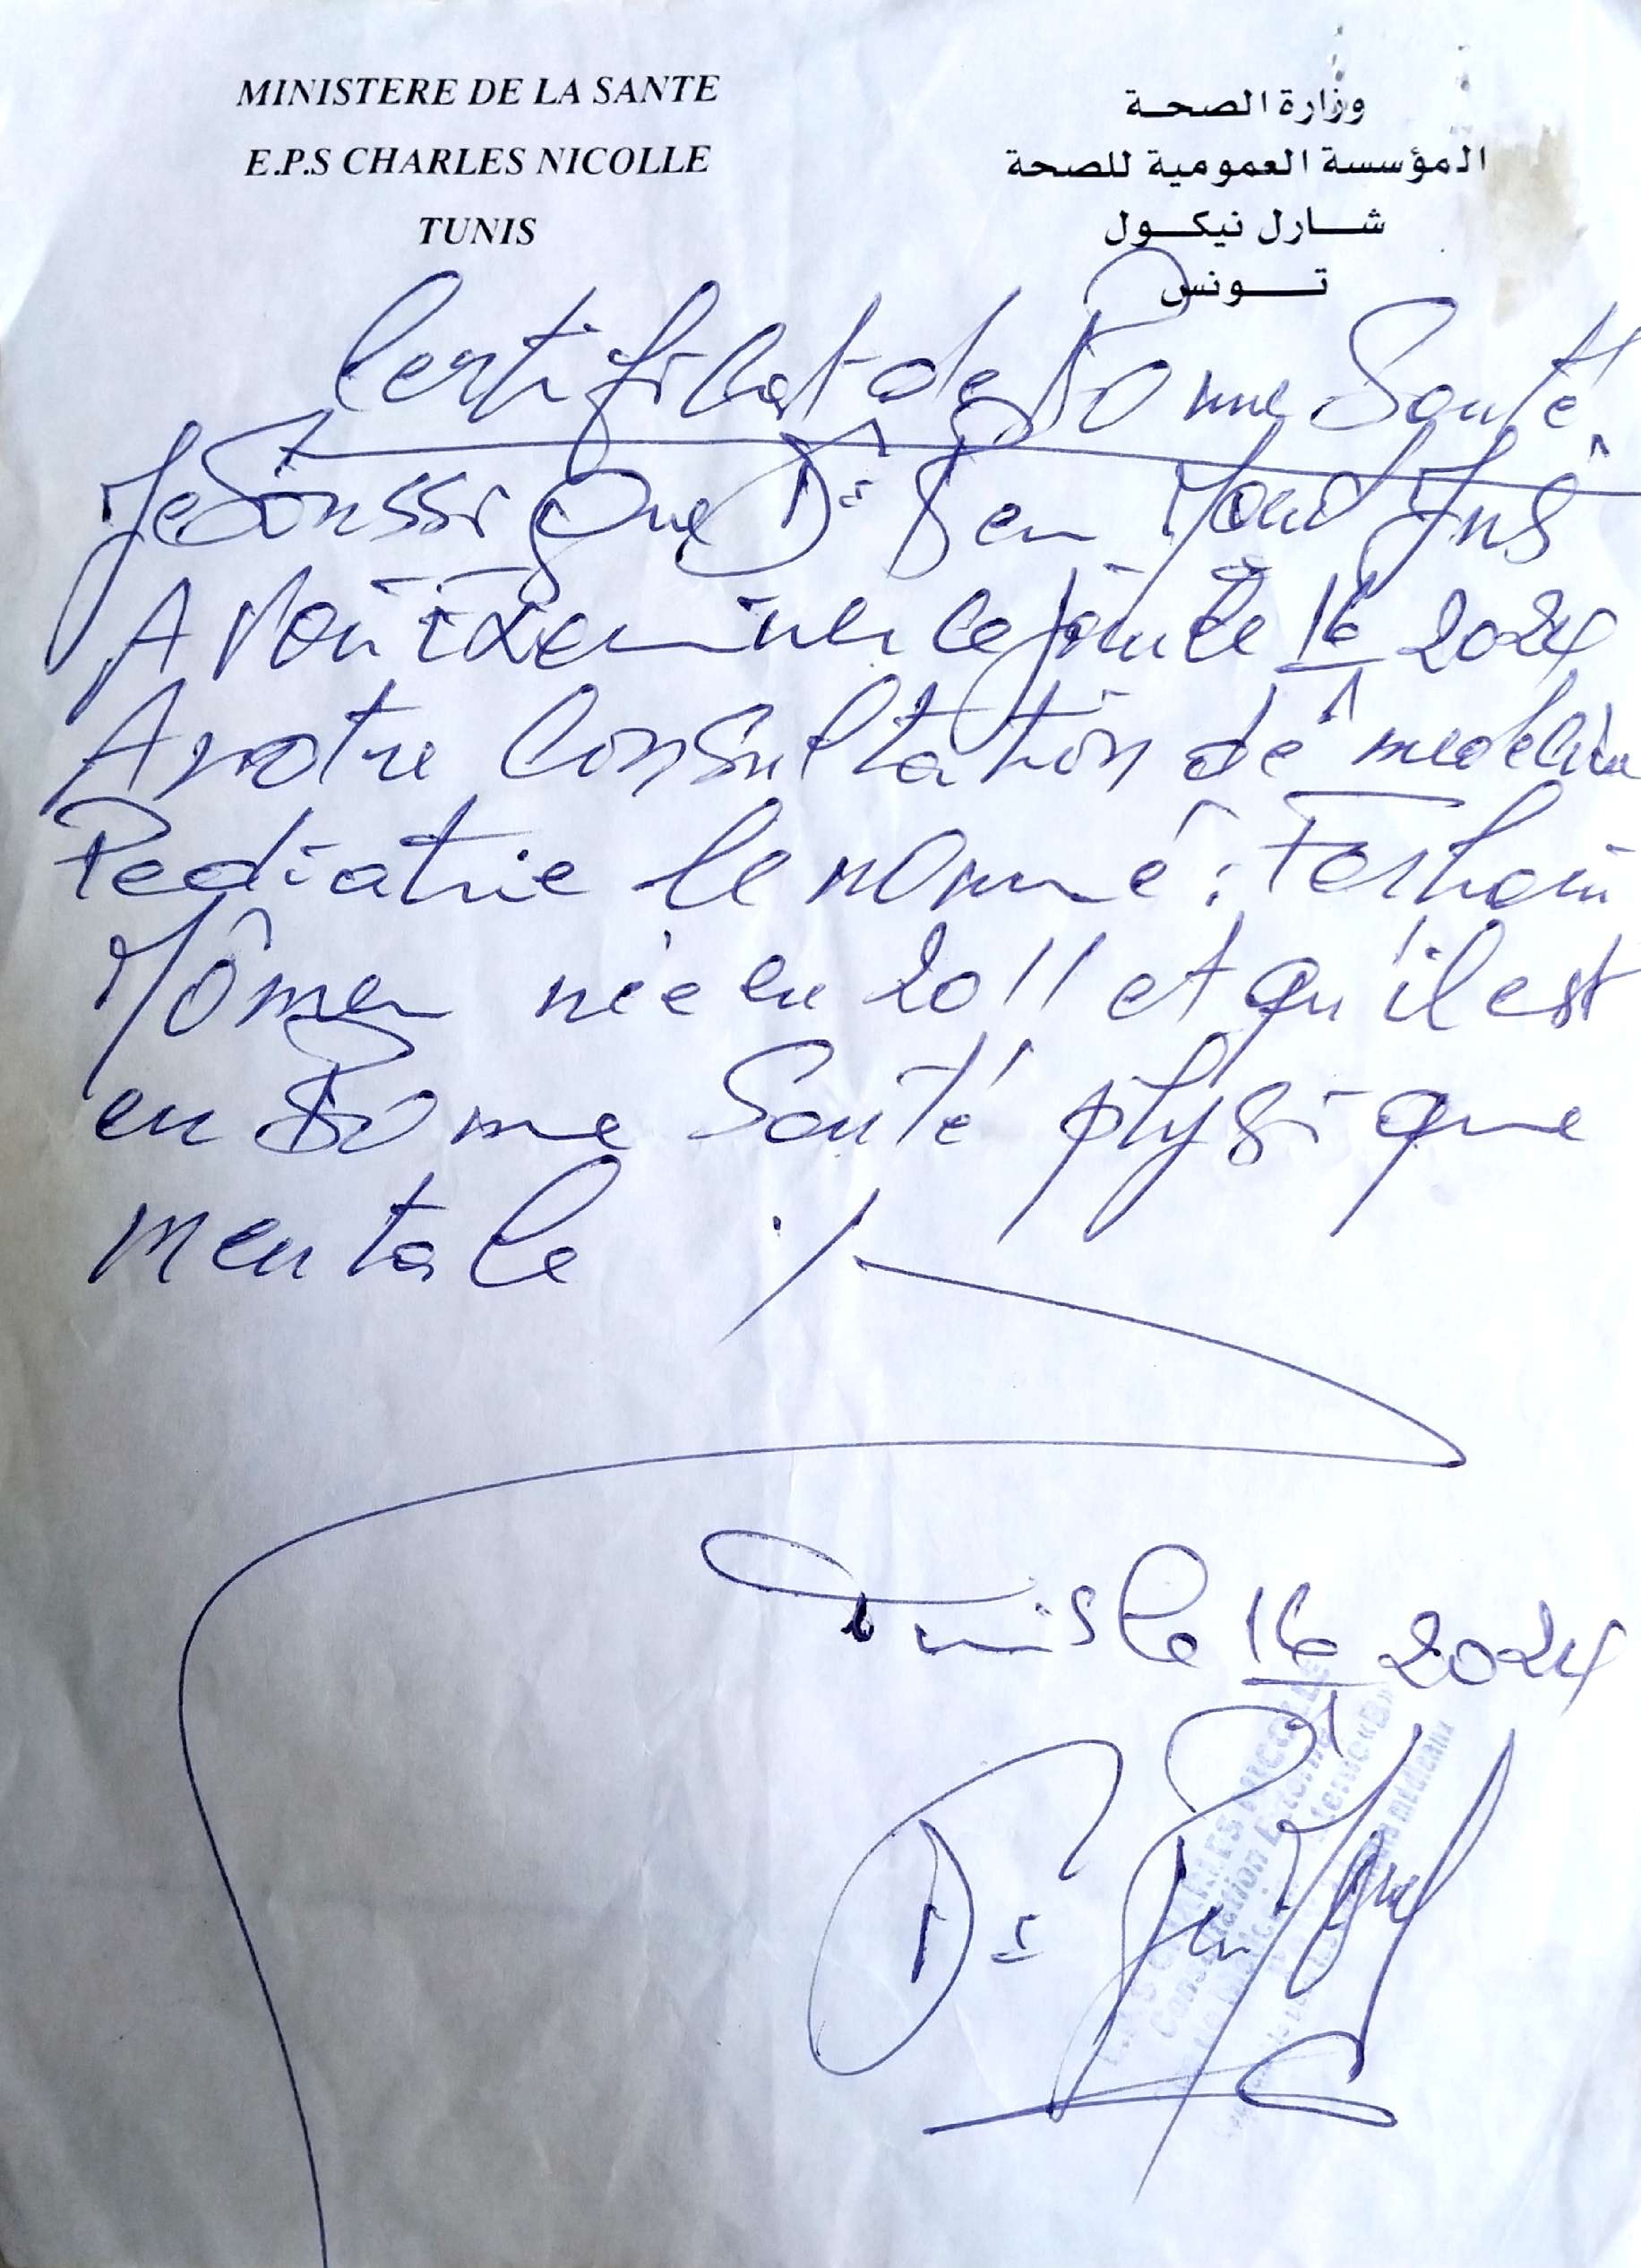 MINISTERE DE LA SANTE
E.P.S CHARLES NICOLLE
TUNIS
وزارة الصحة
المؤسسة العمومية للصحة
شارل نيكول
تونس
Certificat de Bonne Santé
Je Soussigné Dr Ben
Avoir Examiner ce jour le 16/1 2024
A notre Consultation de médecine
Pediatrie le nommé : Ferhani
Mômen née en 2011 et qu'il est
en Bonne Santé physique
mentale ./.
Tunis le 16/1 2024
Dr Ben
CHARLES NICOLLE
Consultation Externe